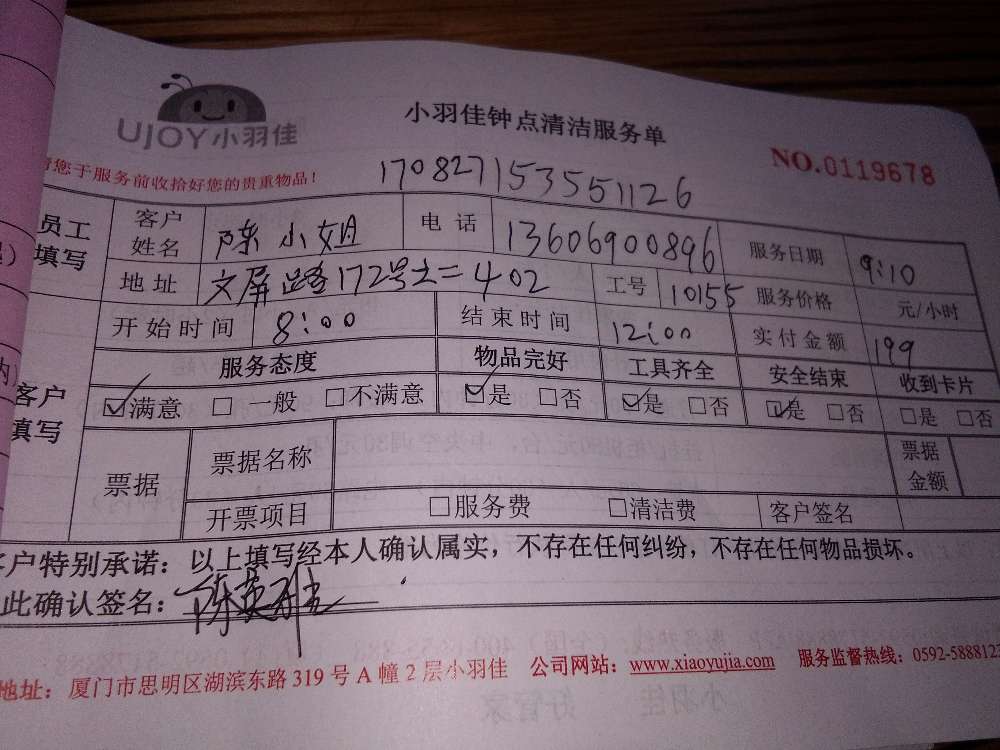 UJOY小羽佳
小羽佳钟点清洁服务单
NO.0119678
请您于服务前收拾好您的贵重物品！
170827153551126
员工填写 客户姓名 陈小姐 电话 13606900896 服务日期 9:10
地址 文屏路172号之二402 工号 10155 服务价格 元/小时
开始时间 8:00 结束时间 12:00 实付金额 199
客户填写 服务态度 物品完好 工具齐全 安全结束 收到卡片
☑满意 □一般 □不满意 ☑是 □否 ☑是 □否 ☑是 □否 □是 □否
票据 票据名称 票据金额
开票项目 □服务费 □清洁费 客户签名
客户特别承诺：以上填写经本人确认属实，不存在任何纠纷，不存在任何物品损坏。
此确认签名：陈
地址：厦门市思明区湖滨东路319号A幢2层小羽佳 公司网站：www.xiaoyujia.com 服务监督热线：0592-5888123